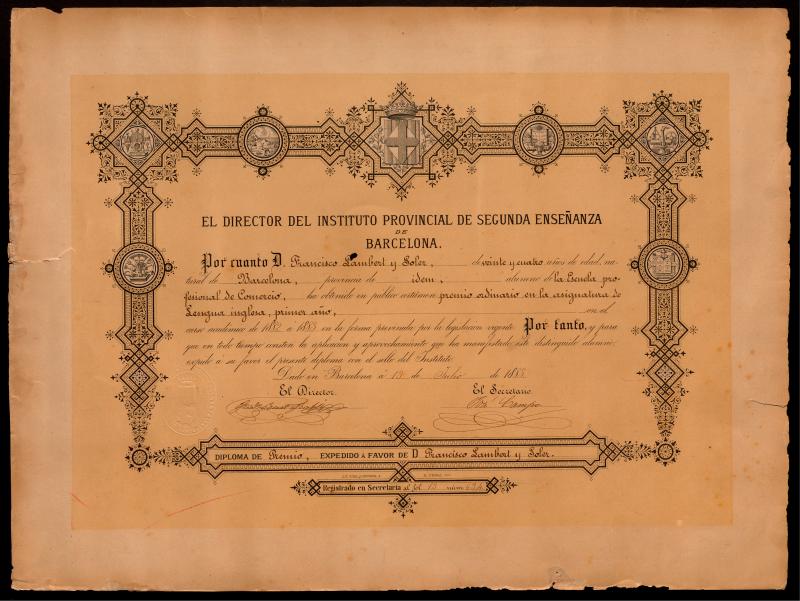 EL DIRECTOR DEL INSTITUTO PROVINCIAL DE SEGUNDA ENSEÑANZA
DE
BARCELONA.
Por cuanto D. Francisco Lambert y Soler, de veinte y cuatro años de edad, na-
tural de Barcelona, provincia de idem, alumno de la Escuela pro-
fesional de Comercio, ha obtenido en público certámen premio ordinario en la asignatura de
Lengua inglesa, primer año, en el
curso académico de 1882 a 1883 en la forma prevenida por la legislacion vigente Por tanto, y para
que en todo tiempo consten la aplicacion y aprovechamiento que ha manifestado este distinguido alumno
expido a su favor el presente diploma con el sello del Instituto
Dado en Barcelona á de Julio de 188
El Director. El Secretario.
Campo
DIPLOMA DE Premio, EXPEDIDO A FAVOR DE D Francisco Lambert y Soler.
Registrado en Secretaría al fol 13 núm